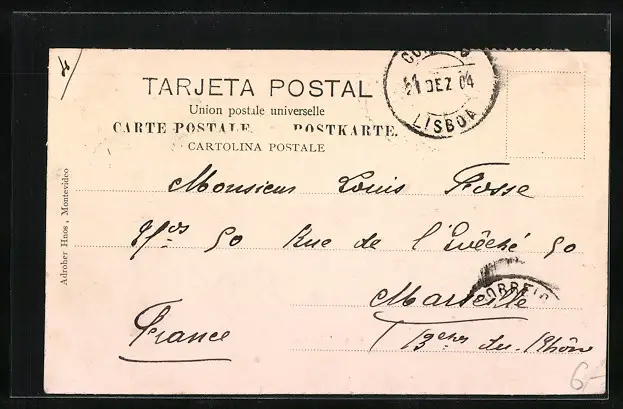 TARJETA POSTAL
Union postale universelle
CARTE POSTALE. POSTKARTE.
CARTOLINA POSTALE
CORREIO
DEZ 04
LISBOA
Adroher Hnos, Montevideo
Monsieur Louis Fosse
50 Rue de l'Evêché 50
Marseille
CORREIO
France
Bches du Rhône
6-